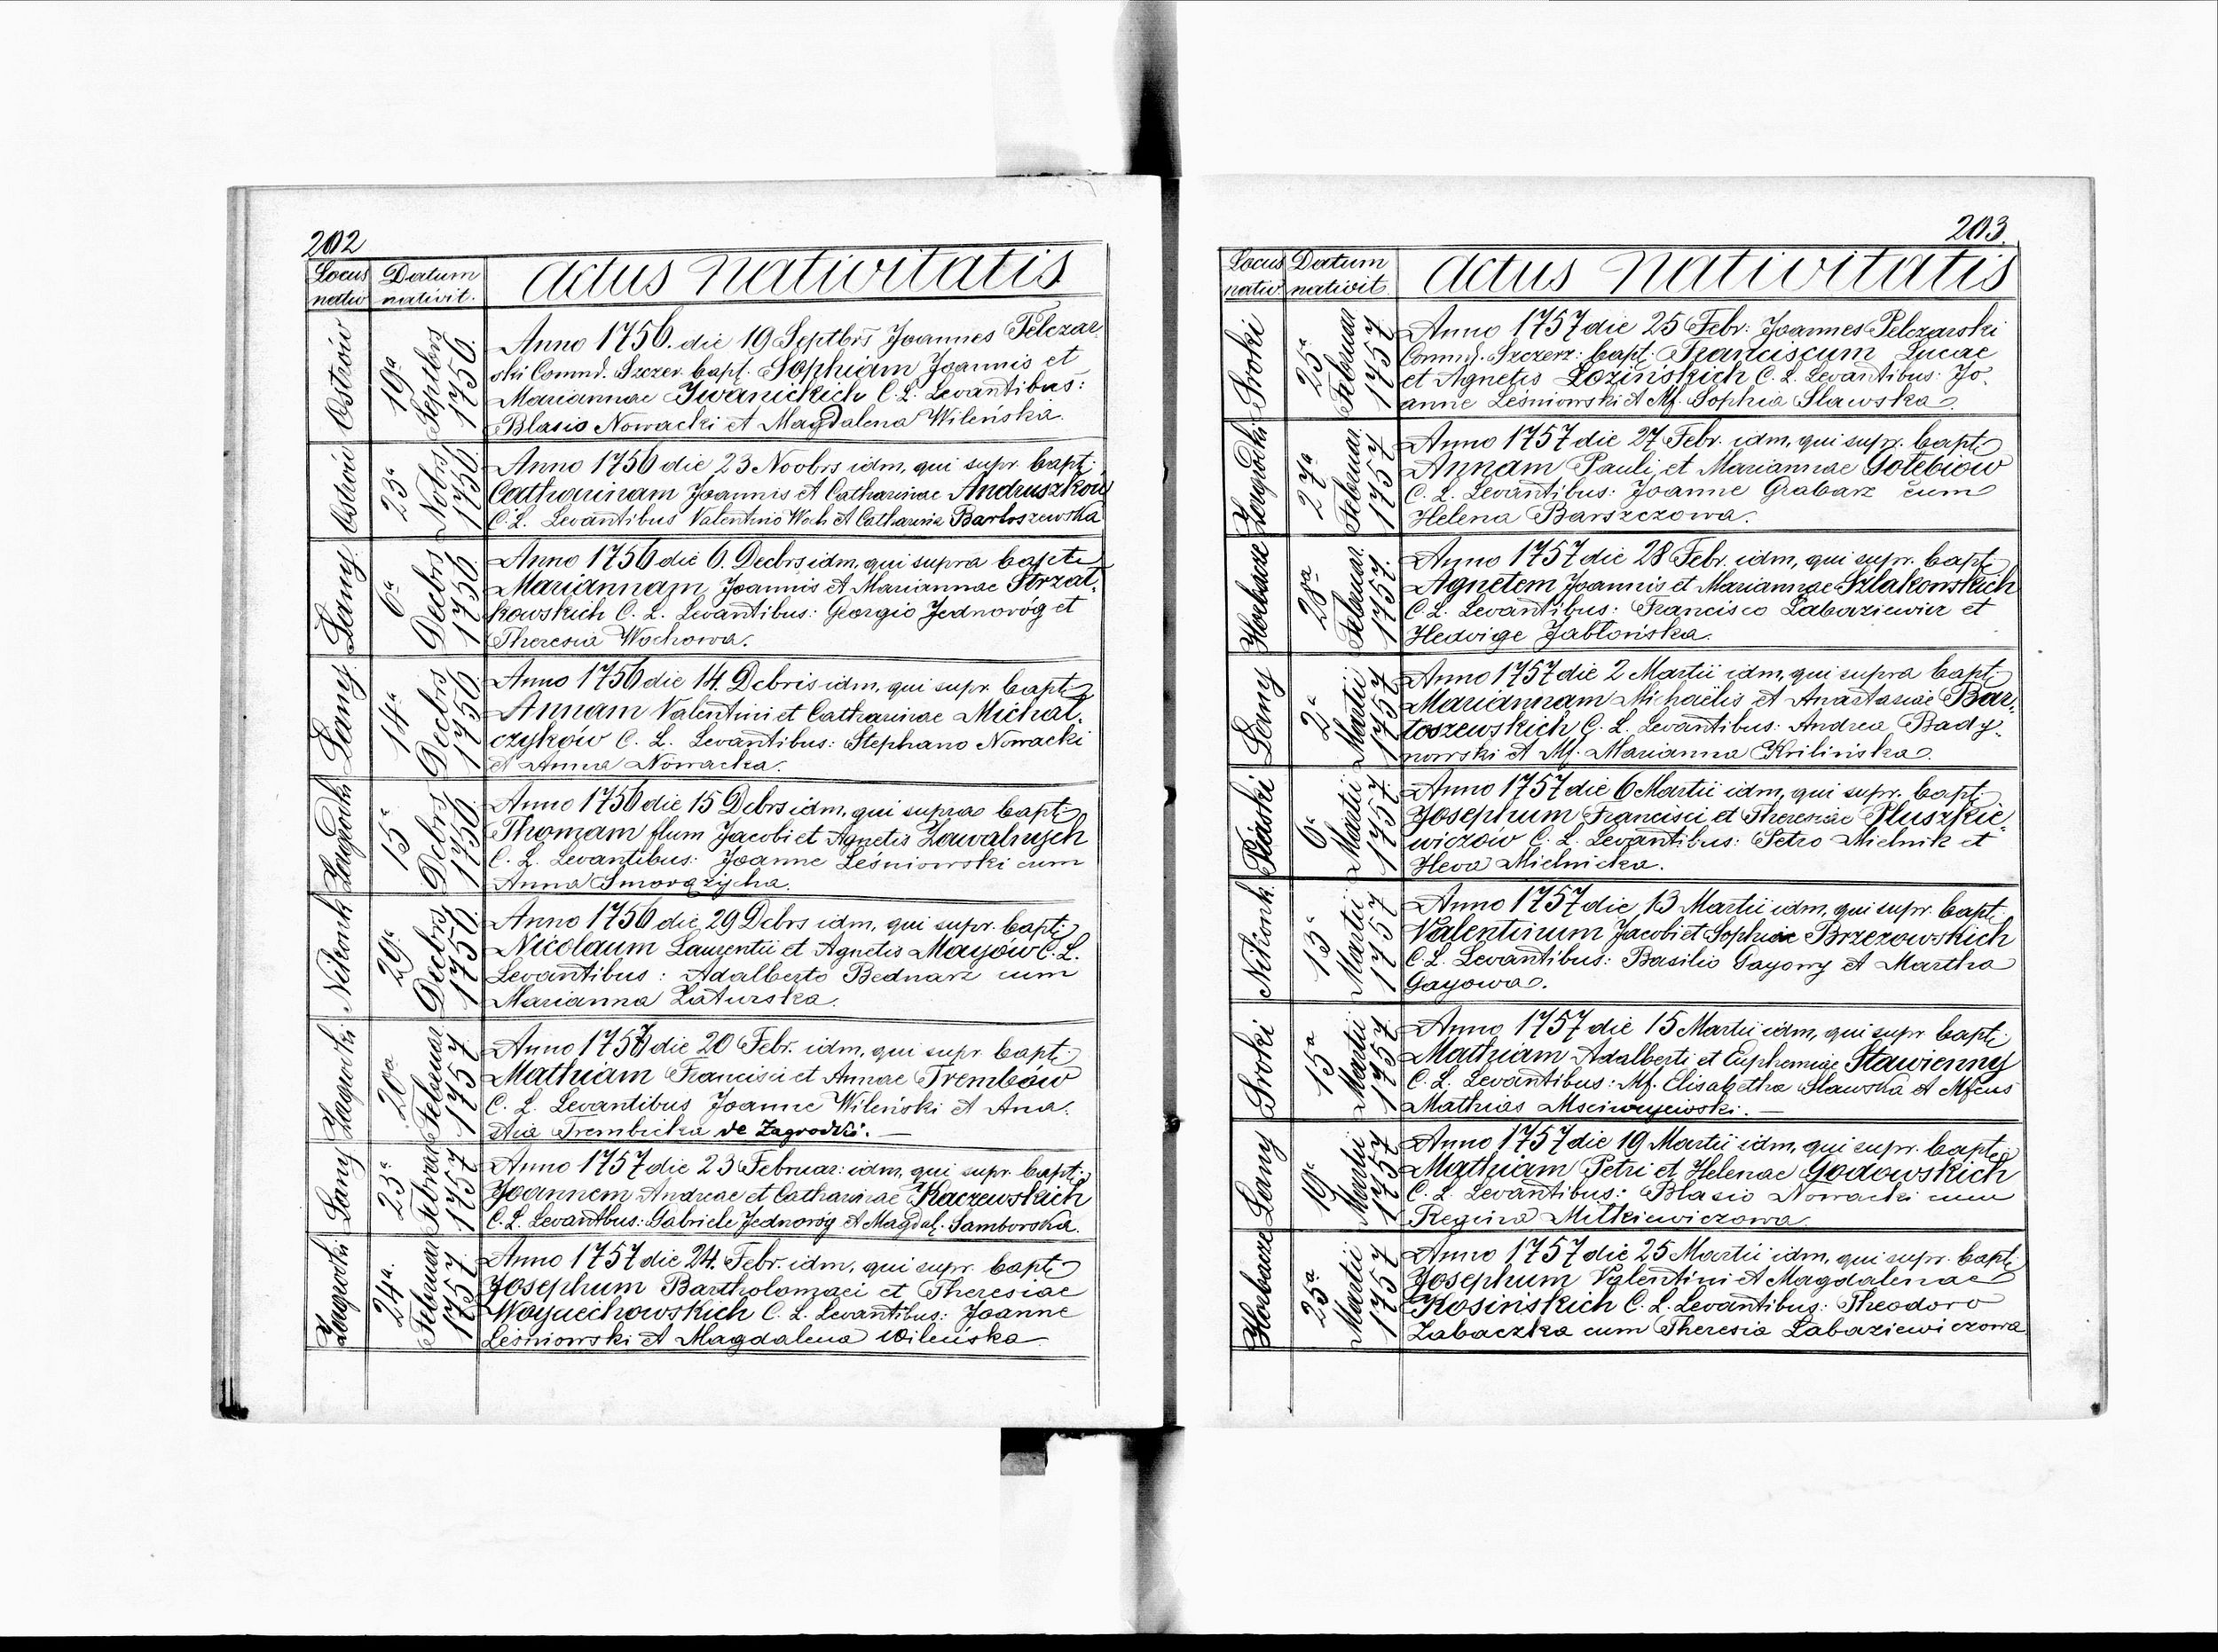 202
Locus nativ
Datum nativit.
Actus Nativitatis
Ostrów
19a Septbrs 1756.
Anno 1756. die 19 Septbrs Joannes Pelczar
ski Commd. Szczer. bapt. Sophiam Joannis et
Mariannae Iwanickich C. L. Levantibus:
Blasio Nowacki et Magdalena Wileńska.
Ostrów
23a Nobrs 1756.
Anno 1756 die 23 Noobrs idm, qui supr. bapt.
Catharinam Joannis et Catharinae Andruszków
C. L. Levantibus Valentino Woch et Catharina Bartoszewska
Łany
6a Decbrs 1756.
Anno 1756 die 6. Decbrs idm, qui supra bapt.
Mariannam Joannis et Mariannae Strzał-
kowskich C. L. Levantibus: Georgio Jednoróg et
Theresia Wochowa.
Łany
14a Decbrs 1756.
Anno 1756 die 14. Debris idm, qui supr. bapt.
Annam Valentini et Catharinae Michal-
czyków C. L. Levantibus: Stephano Nowacki
et Anna Nowacka.
Zagrodki
15a Decbrs 1756.
Anno 1756 die 15 Debrs idm, qui supra bapt.
Thomam flum Jacobi et Agnetis Zawalnych
C. L. Levantibus: Joanne Leśniowski cum
Anna
Nikonk.
29a Decbrs 1756.
Anno 1756 die 29 Debrs idm, qui supr. bapt.
Nicolaum Laurentii et Agnetis Mayów C. L.
Levantibus: Adalberto Bednarz cum
Marianna Zaturska.
Zagrodki
20a Februar 1757
Anno 1757 die 20 Febr. idm, qui supr. bapt.
Mathiam Francisci et Annae Trembów
C. L. Levantibus Joanne Wileński et Ana-
stia Trembicka de Zagrodki. —
Łany
23a Februar 1757
Anno 1757 die 23 Februar: idm, qui supr. bapt.
Joannem Andreae et Catharinae Kaczewskich
C. L. Levantbus: Gabriele Jednoróg et Magdal. Samborska.
Zagrodki
24a. Februar 1757
Anno 1757 die 24. Febr. idm, qui supr. bapt.
Josephum Bartholomaei et Theresiae
Woyciechowskich C. L. Levantibus: Joanne
Leśniowski et Magdalena Wileńska
203.
Locus nativ.
Datum nativit.
Actus Nativitatis
Sroki
25a Februar 1757
Anno 1757 die 25 Febr: Joannes Pelczarski
Commd. Szczerz: bapt. Franciscum Lucae
et Agnetis Łozińskich C. L. Levantibus: Jo-
anne Leśniowski et Mf. Sophia Sławska.
Zagrodki
27a Februar. 1757
Anno 1757 die 27 Febr. idm, qui supr. bapt.
Annam Pauli et Mariannae Gołębiów
C. L. Levantibus: Joanne Grabarz cum
Helena Barszczowa.
Horbacze
28a Februar. 1757.
Anno 1757 die 28 Febr. idm, qui supr. bapt.
Agnetem Joannis et Mariannae Szlakowskich
C. L. Levantibus: Francisco Łabaziewicz et
Hedvige Jabłońska.
Łany
2a Martii 1757
Anno 1757 die 2 Martii idm, qui supra bapt.
Mariannam Michaëlis et Anastasiae Bar-
toszewskich C. L. Levantibus: Andrea Bady-
nowski et Mf. Marianna Krilińska.
Piaski
6a Martii 1757.
Anno 1757 die 6 Martii idm, qui supr. bapt.
Josephum Francisci et Theresiae Pluszkie-
wiczów C. L. Levantibus: Petro Mielnik et
Heva Mielnicka.
Nikonk.
13a Martii 1757
Anno 1757 die 13 Martii idm, qui supr. bapt.
Valentinum Jacobi et Sophiae Brzezowskich
C. L. Levantibus: Basilio Gayowy et Martha
Gayowa.
Sroki
15a Martii 1757
Anno 1757 die 15 Martii idm, qui supr bapt.
Mathiam Adalberti et Euphemiae Stawienny
C. L. Levantibus: Mf. Elisabetha Sławska et Mfcus
Mathias
Łany
19a Martii 1757
Anno 1757 die 19 Martii idm, qui supr. bapt.
Mathiam Petri et Helenae Godowskich
C. L. Levantibus: Blasio Nowacki cum
Regina Mitkiewiczowa.
Horbacze
25a Martii 1757
Anno 1757 die 25 Martii idm, qui supr. bapt.
Josephum Valentini et Magdalenae
Kosińskich C. L. Levantibus: Theodoro
Zabaczka cum Theresia Łabaziewiczowa